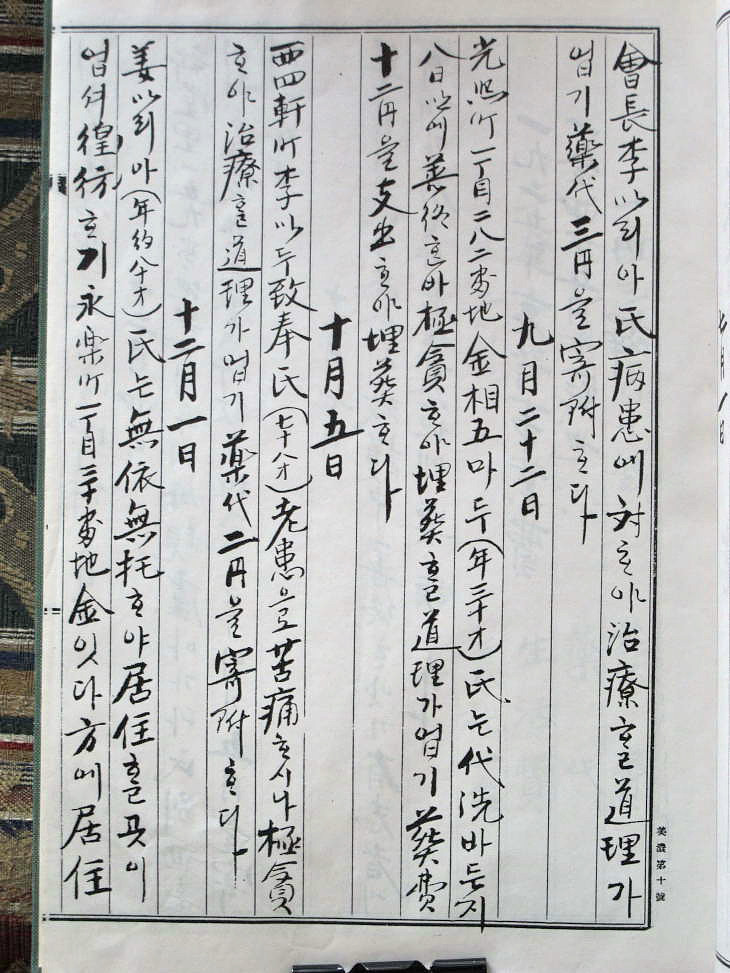 會長李ᄋᆡ리아氏病患에対ᄒᆞ야治療ᄒᆞᆯ道理가
업기藥代三円을寄附ᄒᆞ다
九月二十二日
光熙町一丁目二八二番地金相五마두(年三十才)氏는代洗바든지
八日에善終ᄒᆞᆫ바極貧ᄒᆞ야埋葬ᄒᆞᆯ道理가업기葬費
十二円을支出ᄒᆞ야埋葬ᄒᆞ다
十月五日
西四軒町李두致奉氏(七十八才)老患으로苦痛ᄒᆞ시나極貧
ᄒᆞ야治療ᄒᆞᆯ道理가업기藥代二円을寄附ᄒᆞ다
十二月一日
姜리아(年約八十才)氏는無依無托ᄒᆞ야居住ᄒᆞᆯ곳이
업셔徨彷ᄒᆞ기永楽町一丁目三十番地金잇다方에居住
美濃第十號
七月一日